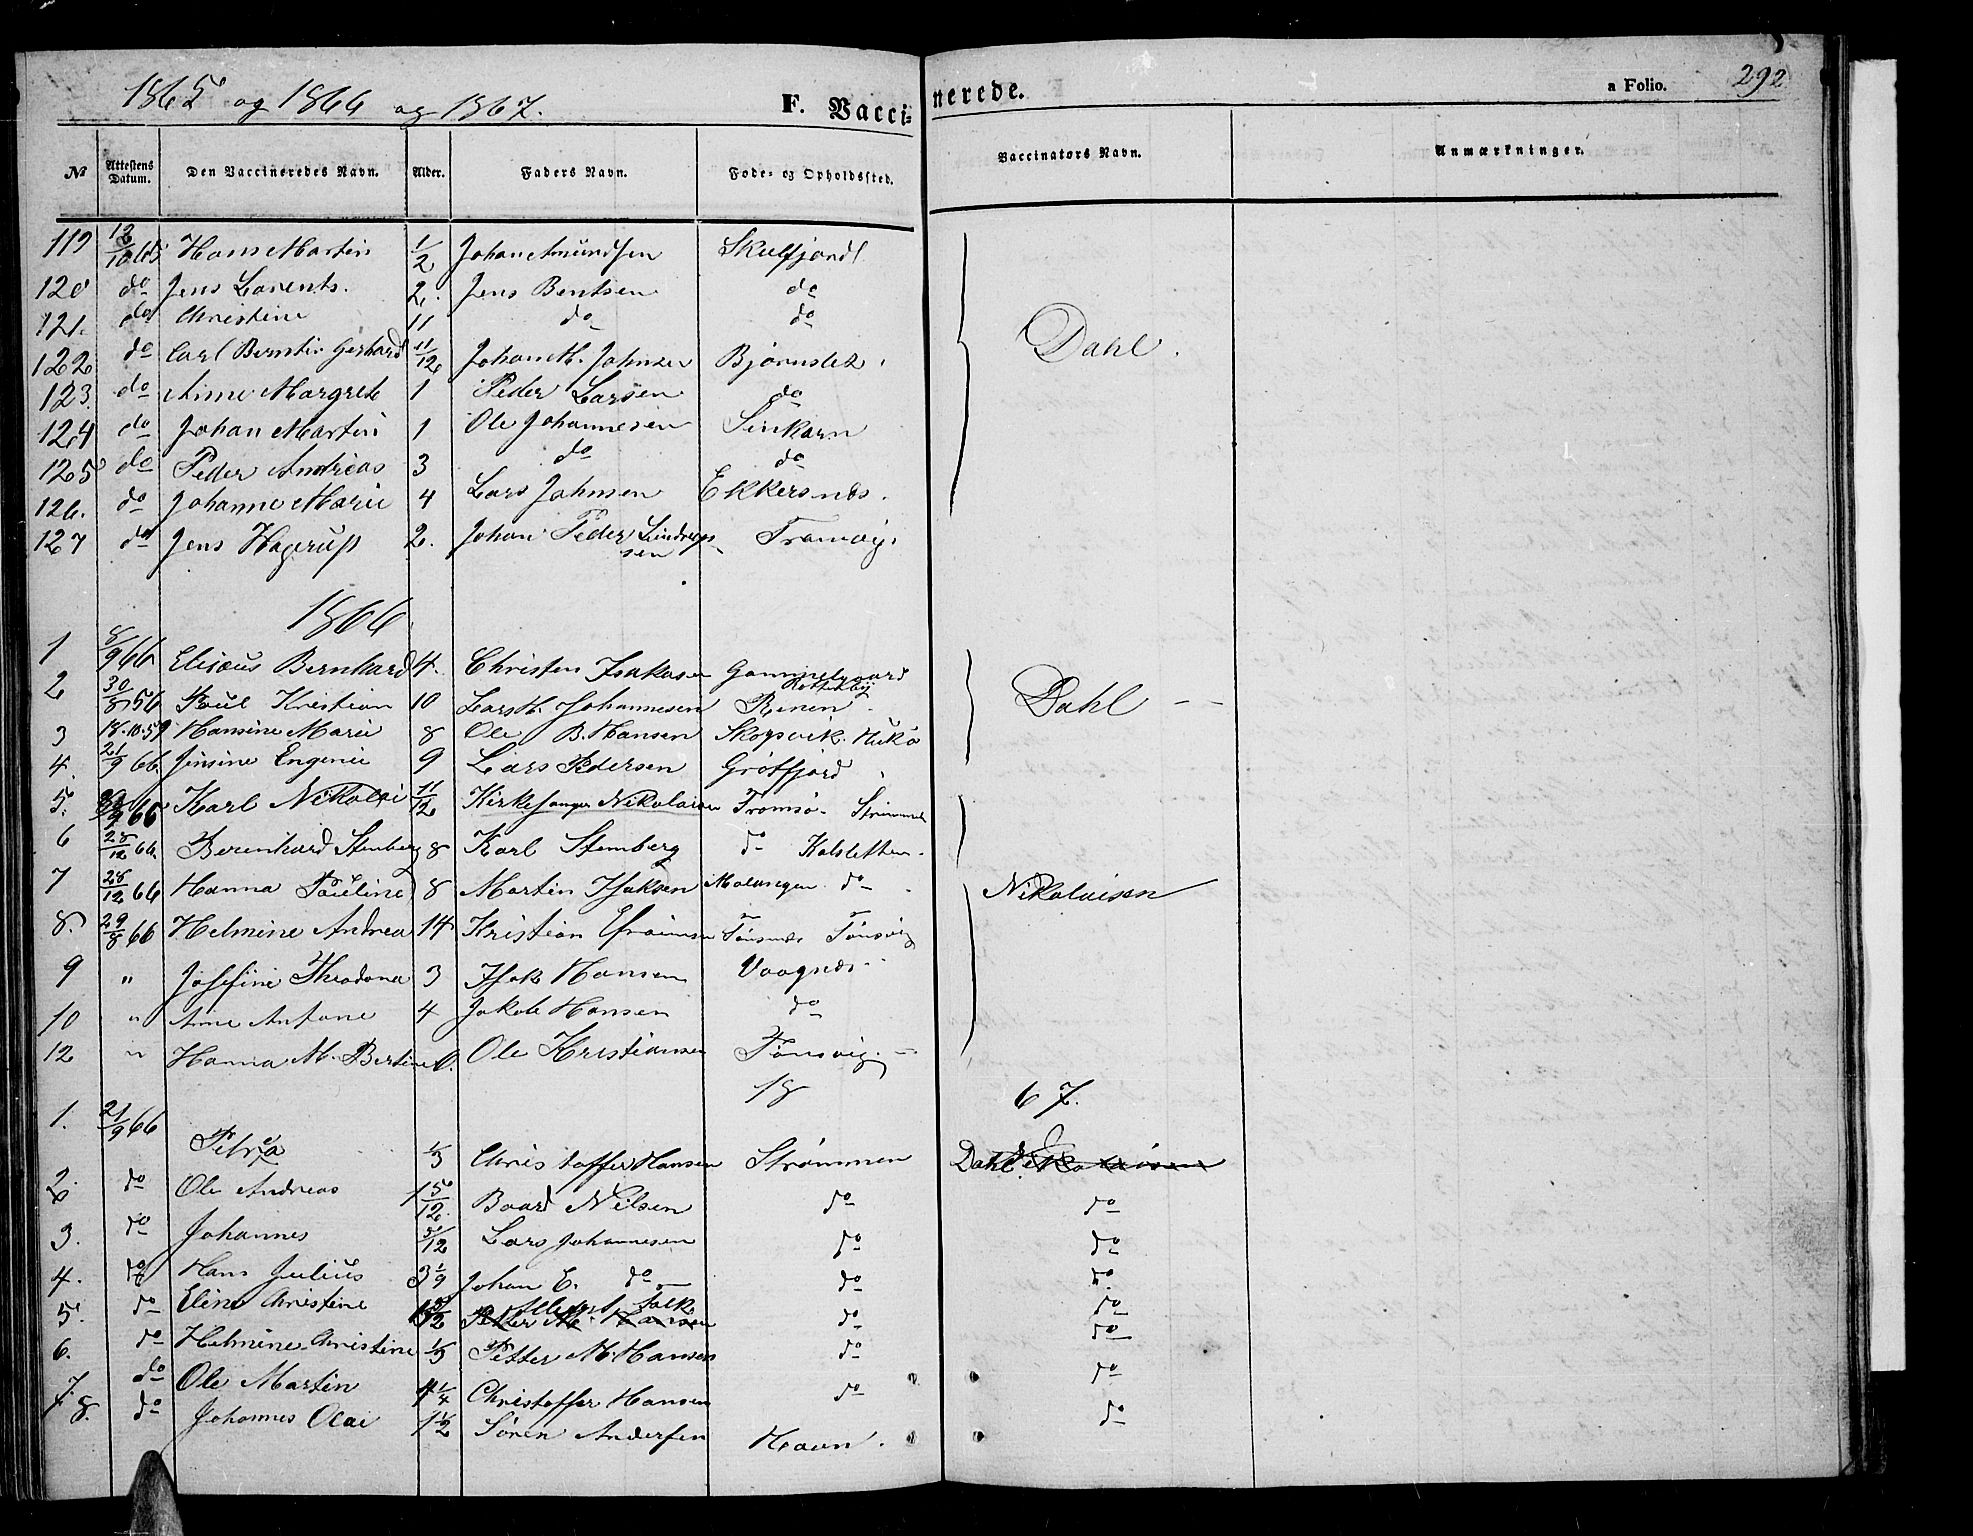 1865 og 1866 og 1867.
F. Vaccinerede.
a Folio. 292
№ Attestens Datum. Den Vaccineredes Navn. Alder. Faders Navn. Føde- og Opholdssted. Vaccinators Navn. Anmærkninger.
119 12/10 65 Hans Martin 1/2 Johan Amundsen Skulsfjord
120 do Jens Lorents. 2. Jens Bentsen do
121. do Christine 11 do do
122 do Carl Berntin Gerhard 11/12 Johan M. Johnsen Bjørnslet. Dahl.
123. do Anne Margrete 1 Peder Larsen do
124 do Johan Martin 1 Ole Johannesen Sinkarn
125 do Peder Andreas 3 do do
126. do Johanne Marie 4 Lars Johnsen Ekkersnes.
127 do Jens Hagerup 2. Johan Peder Lindrupsen Tromvig.
1866
1 8/9 66 Elisæus Bernhard 4. Christen Isaksen Gammelgaard
2 30/8 56 Paul Kristian 10 Lars H. Johannesen Renen. Dahl
3 18-10-59 Hansine Marie 8 Ole B. Hansen Skogsvik.
4. 21/9 66. Jensine Engenie 9 Lars Pedersen Grøtfjord
5. 66 Karl Nikolai 11/12 Kirkesanger Nikolaisen Tromsø. Strømmen
6 28/12 66. Berenhard Stenberg 8 Karl Stenberg do Kalsletten.
7 28/12 66 Hanna Pauline 8 Martin Isaksen Malangen. do Nikolaisen
8. 29/8 66 Helmine Andrea 14 Kristian Efraimsen Tønsnes Tønsvig
9 " Josefine Theodora 3 Isak Hansen Vaagnes
10 " Ane Antone 4 Jakob Hansen do
12 " Hanna M. Bertine Ole Kristiansen Tønsvig.
18 67.
1. 21/9 66 Petrea 1/3 Christoffer Hansen Strømmen Dahl
2. do Ole Andreas 1 5/12 Baard Nilsen do do
3. do Johannes 5/12 Lars Johannesen do do
4. do Hans Julius 3 1/9 Johan E. do do do
5. do Eline Christine Petter M. Hansen do do
6. do Helmine Christine 1/3 Petter M. Hansen do do
7. do Ole Martin 1/4 Christoffer Hansen do do
8. do Johannes Olai 1 1/2 Søren Andersen Havn. do